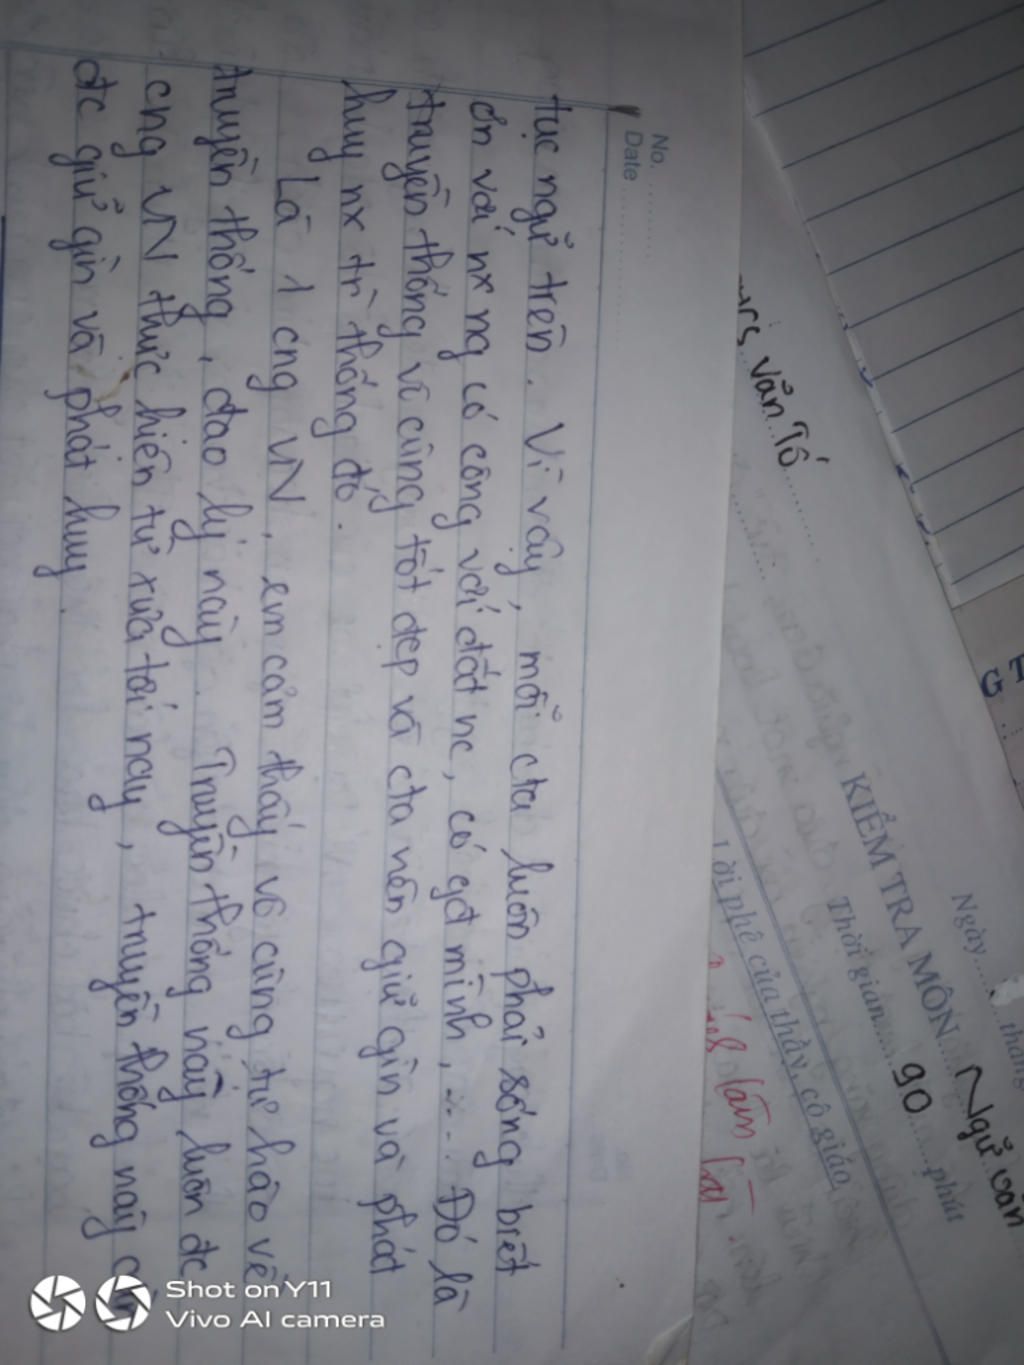 No. ...........
Date ...............
tục ngữ trên. Vì vậy, mỗi cta luôn phải sống biết
ơn với nx ng có công với đất nc, có gđ mình, ... Đó là
truyền thống vô cùng tốt đẹp và cta nên giữ gìn và phát
huy nx tr` thống đó.
Là 1 cng VN, em cảm thấy vô cùng tự hào về
truyền thống, đạo lý này. Truyền thống này luôn đc
cng VN thực hiện từ xưa tới nay, truyền thống này
đc giữ gìn và phát huy.
Văn Tố
Ngày ...... tháng
KIỂM TRA MÔN ...... Ngữ văn
Thời gian ...... 90 ...... phút
Lời phê của thầy, cô giáo
làm
G T
Shot on Y11
Vivo AI camera